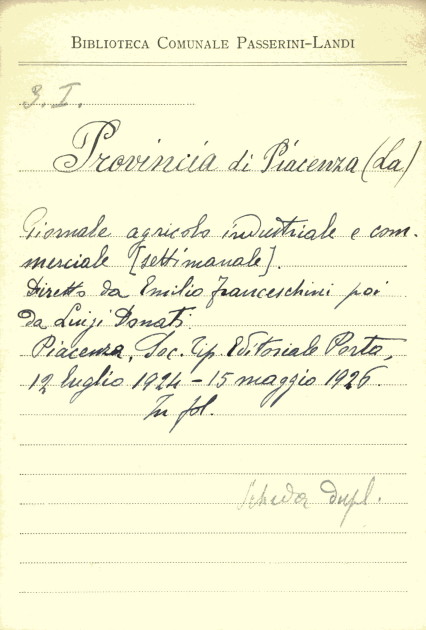 BIBLIOTECA COMUNALE PASSERINI-LANDI
3. I.
Provincia di Piacenza (La)
Giornale agricolo industriale e com-
merciale [settimanale].
Diretto da Emilio Franceschini poi
da Luigi Donati.
Piacenza, Soc. Tip. Editoriale Porta,
12 luglio 1924 - 15 maggio 1926.
In fol.
Scheda dupl.